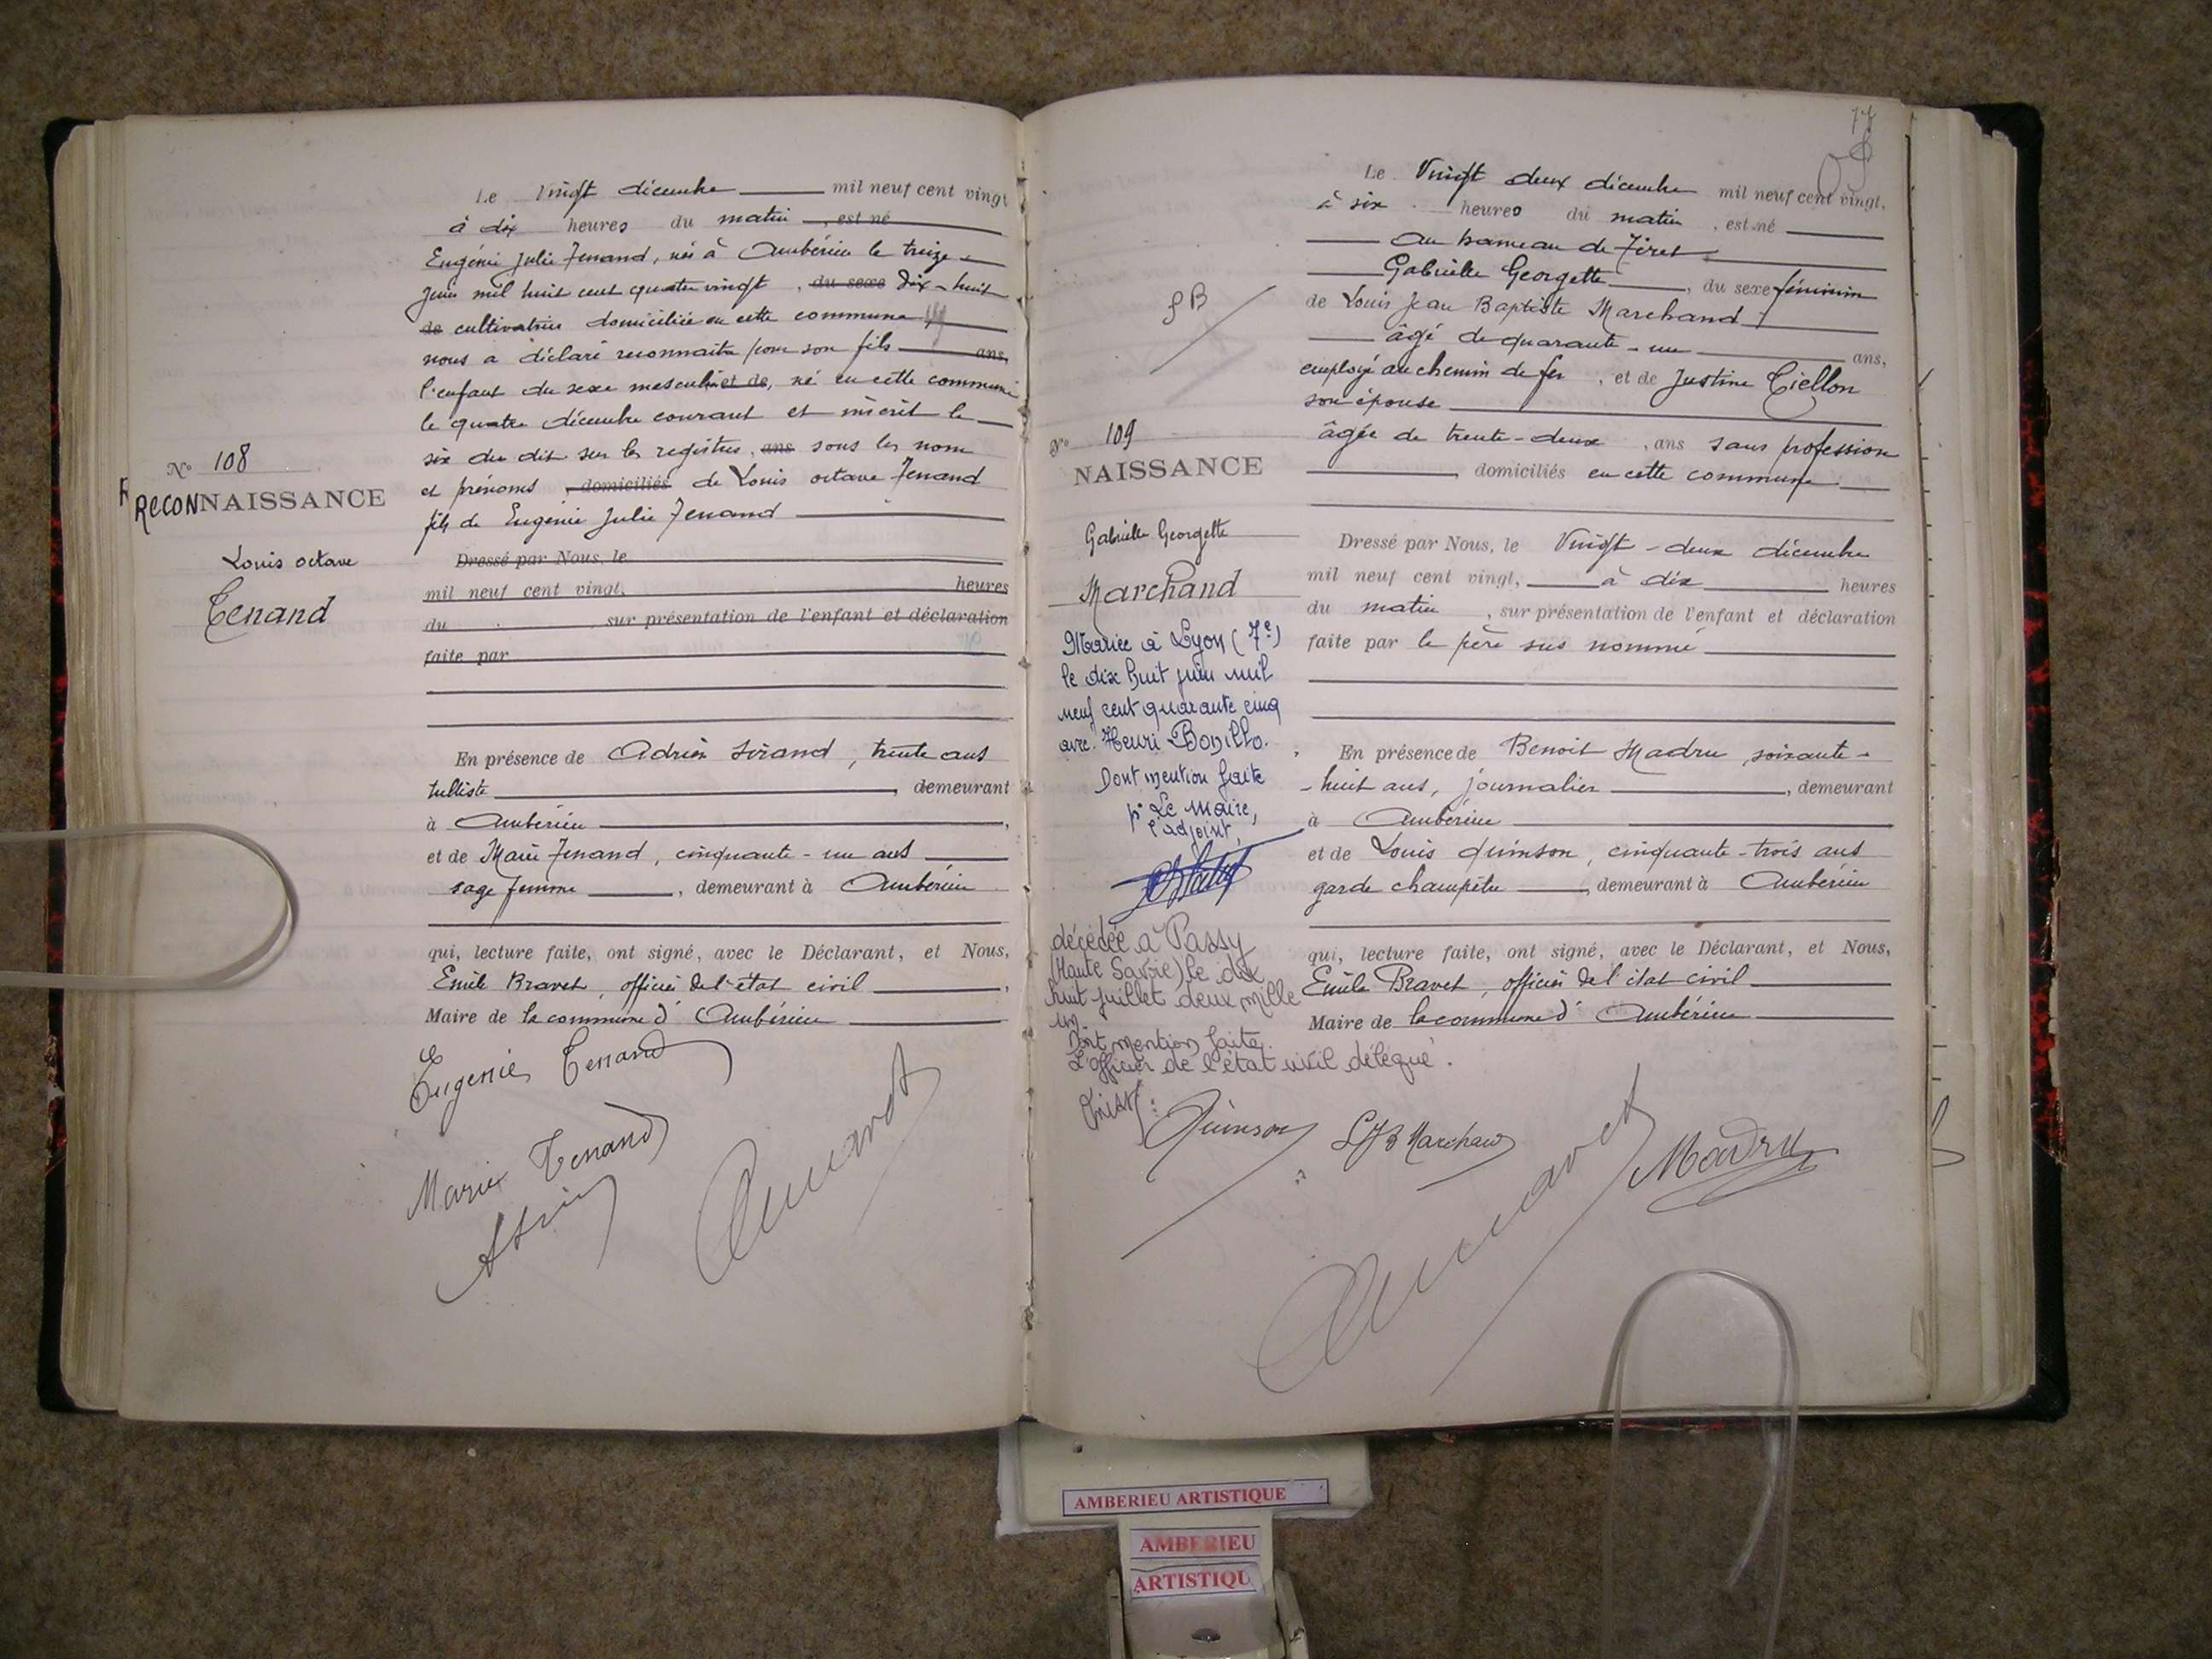 Le Vingt décembre mil neuf cent vingt
à dix heures du matin , est né
Eugénie Julie Tenand, née à Ambérieu le treize
Juin mil huit cent quatre vingt , du sexe dix-huit
de cultivatrice domiciliée en cette commune
nous a déclaré reconnaitre pour son fils ans,
l'enfant du sexe masculin et de, né en cette commune
le quatre décembre courant et inscrit le
six du dit sur les registres, ans sous les nom
et prénoms , domiciliés de Louis octave Tenand
fils de Eugénie Julie Tenand
N° 108
RECONNAISSANCE
Louis octave
Tenand
Dressé par Nous, le
mil neuf cent vingt, heures
du , sur présentation de l'enfant et déclaration
faite par
En présence de Adrien Sirand, trente ans
tulliste , demeurant
à Ambérieu ,
et de Marie Tenand, cinquante-un ans
sage femme , demeurant à Ambérieu
qui, lecture faite, ont signé, avec le Déclarant, et Nous,
Emile Bravet, officier de l'état civil ,
Maire de la commune d'Ambérieu
Eugenie Tenand
Marie Tenand
77
Le Vingt deux décembre mil neuf cent vingt,
à six heures du matin , est né
au hameau de Tiret
Gabrielle Georgette , du sexe féminin
de Louis Jean Baptiste Marchand
âgé de quarante-un ans,
employé au chemin de fer , et de Justine Tiellon
son épouse
âgée de trente-deux , ans sans profession
, domiciliés en cette commune
N° 109
NAISSANCE
Gabrielle Georgette
Marchand
Mariée à Lyon (7e)
le dix huit juin mil
neuf cent quarante cinq
avec Henri Bonillo.
Dont mention faite
p. Le Maire,
l'adjoint,
décédée à Passy
(Haute Savoie) le dix
huit juillet deux mille
un.
Dont mention faite.
L'officier de l'état civil délégué.
Dressé par Nous, le Vingt-deux décembre
mil neuf cent vingt, à dix heures
du matin , sur présentation de l'enfant et déclaration
faite par le père sus nommé
En présence de Benoit Madru, soixante-
-huit ans, journalier , demeurant
à Ambérieu
et de Louis Quinson, cinquante-trois ans
garde champêtre , demeurant à Ambérieu
qui, lecture faite, ont signé, avec le Déclarant, et Nous,
Emile Bravet, officier de l'état civil
Maire de la commune d'Ambérieu
Quinson LJB Marchand Madru
AMBERIEU ARTISTIQUE
AMBERIEU
ARTISTIQU